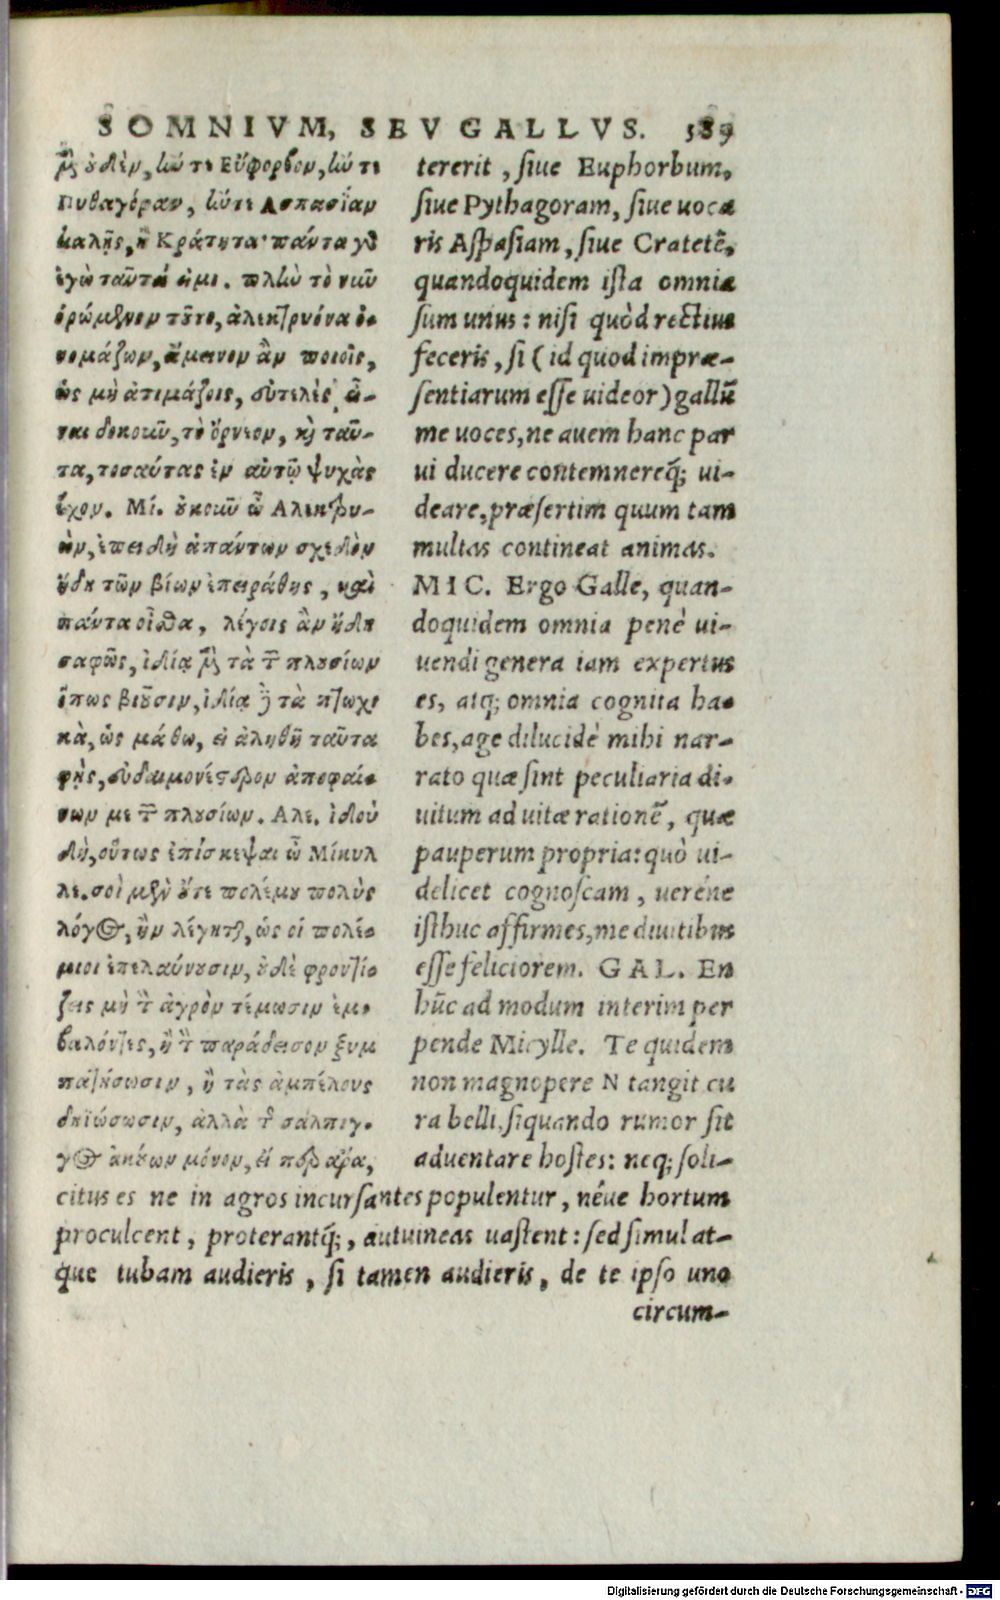 SOMNIVM, SEV GALLVS. 389
μ̃ς ὀδὲν, ἰώ τι Εὔφορβον, ἰώ τι
Πυθαγόραν, ἰώτι Ασπασίαν
καλῇς, ἢ Κράτητα· πάντα γδ
ἐγὼ ταῦτά εἰμι. πλὴν τὸ νιῦ
ὁρώμενον τοῦτο, ἀλεκτρυόνα ὀ-
νομάζων, ἄμεινον ἂν ποιοῖς,
ὡς μὴ ἀτιμάζοις, εὐτελὲς ὦ-
ναι δοκοιῦ, τὸ ὄρνιον, κὶ ταῦ-
τα, τοσαύτας ἐν αὑτῷ ψυχὰς
ἔχον. Μί. ὀκοιῦ ὦ Αλεκτρυ-
ὼν, ἐπειδὴ ἁπάντων σχεδὸν
ἤδη τῶν βίων ἐπειράθης, καὶ
πάντα οἶσθα, λέγοις ἂν ἤδη
σαφῶς, ἰδίᾳ μ̃ς τὰ τ̃ πλουσίων
ὅπως βιοῦσιν, ἰδίᾳ ὃ τὰ πτωχι
κὰ, ὡς μάθω, εἰ ἀληθῆ ταῦτα
φῂς, εὐδαιμονέστερον ἀποφαί-
νων με τ̃ πλουσίων. Αλε. ἰδοὺ
δὴ, οὕτως ἐπίσκεψαι ὦ Μίκυλ
λε. σοὶ μὲν οὔτε πολέμου πολὺς
λόγος, ἢν λέγηται, ὡς οἱ πολέ-
μιοι ἐπελαύνουσιν, ὀδὲ φροντί-
ζεις μὴ τ̃ ἀγρὸν τέμωσιν ἐμ-
βαλόντες, ἢ τ̃ παράδεισον ξυμ
πατήσωσιν, ἢ τὰς ἀμπέλους
δῃώσωσιν, ἀλλὰ τ̃ σάλπιγ-
γος ἀκούων μόνον, εἴ περ ἄρα,
tererit, siue Euphorbum,
siue Pythagoram, siue uoca
ris Aspasiam, siue Cratetē,
quandoquidem ista omnia
sum unus: nisi quòd rectius
feceris, si (id quod impræ-
sentiarum esse uideor) gallū
me uoces, ne auem hanc par
ui ducere contemnereq́; ui-
deare, præsertim quum tam
multas contineat animas.
MIC. Ergo Galle, quan-
doquidem omnia penè ui-
uendi genera iam expertus
es, atq; omnia cognita ha-
bes, age dilucidè mihi nar-
rato quæ sint peculiaria di-
uitum ad uitæ rationē, quæ
pauperum propria: quò ui-
delicet cognoscam, uerène
isthuc affirmes, me diuitibus
esse feliciorem. GAL. En
hūc ad modum interim per
pende Micylle. Te quidem
non magnopere N tangit cu
ra belli, siquando rumor sit
aduentare hostes: neq; soli-
citus es ne in agros incursantes populentur, néue hortum
proculcent, proterantq́;, aut uineas uastent: sed simul at-
que tubam audieris, si tamen audieris, de te ipso uno
circum-
Digitalisierung gefördert durch die Deutsche Forschungsgemeinschaft - DFG